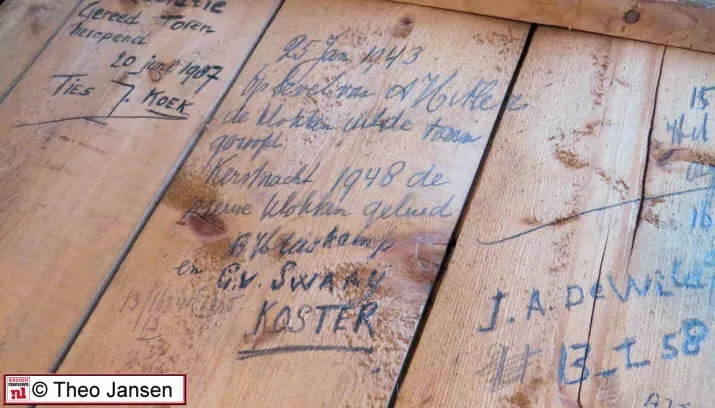 Gereed Toren
heropend
20 juni 1987
TIES J. KOEK
25 Jan 1943
op bevel van A Hitler
de klokken uit de toren
geroofd
Kerstnacht 1948 de
nieuwe klokken geluid
en G.V. SWAAY
KOSTER
15
16
J. A. DE WILD
13-1-58
nl © Theo Jansen